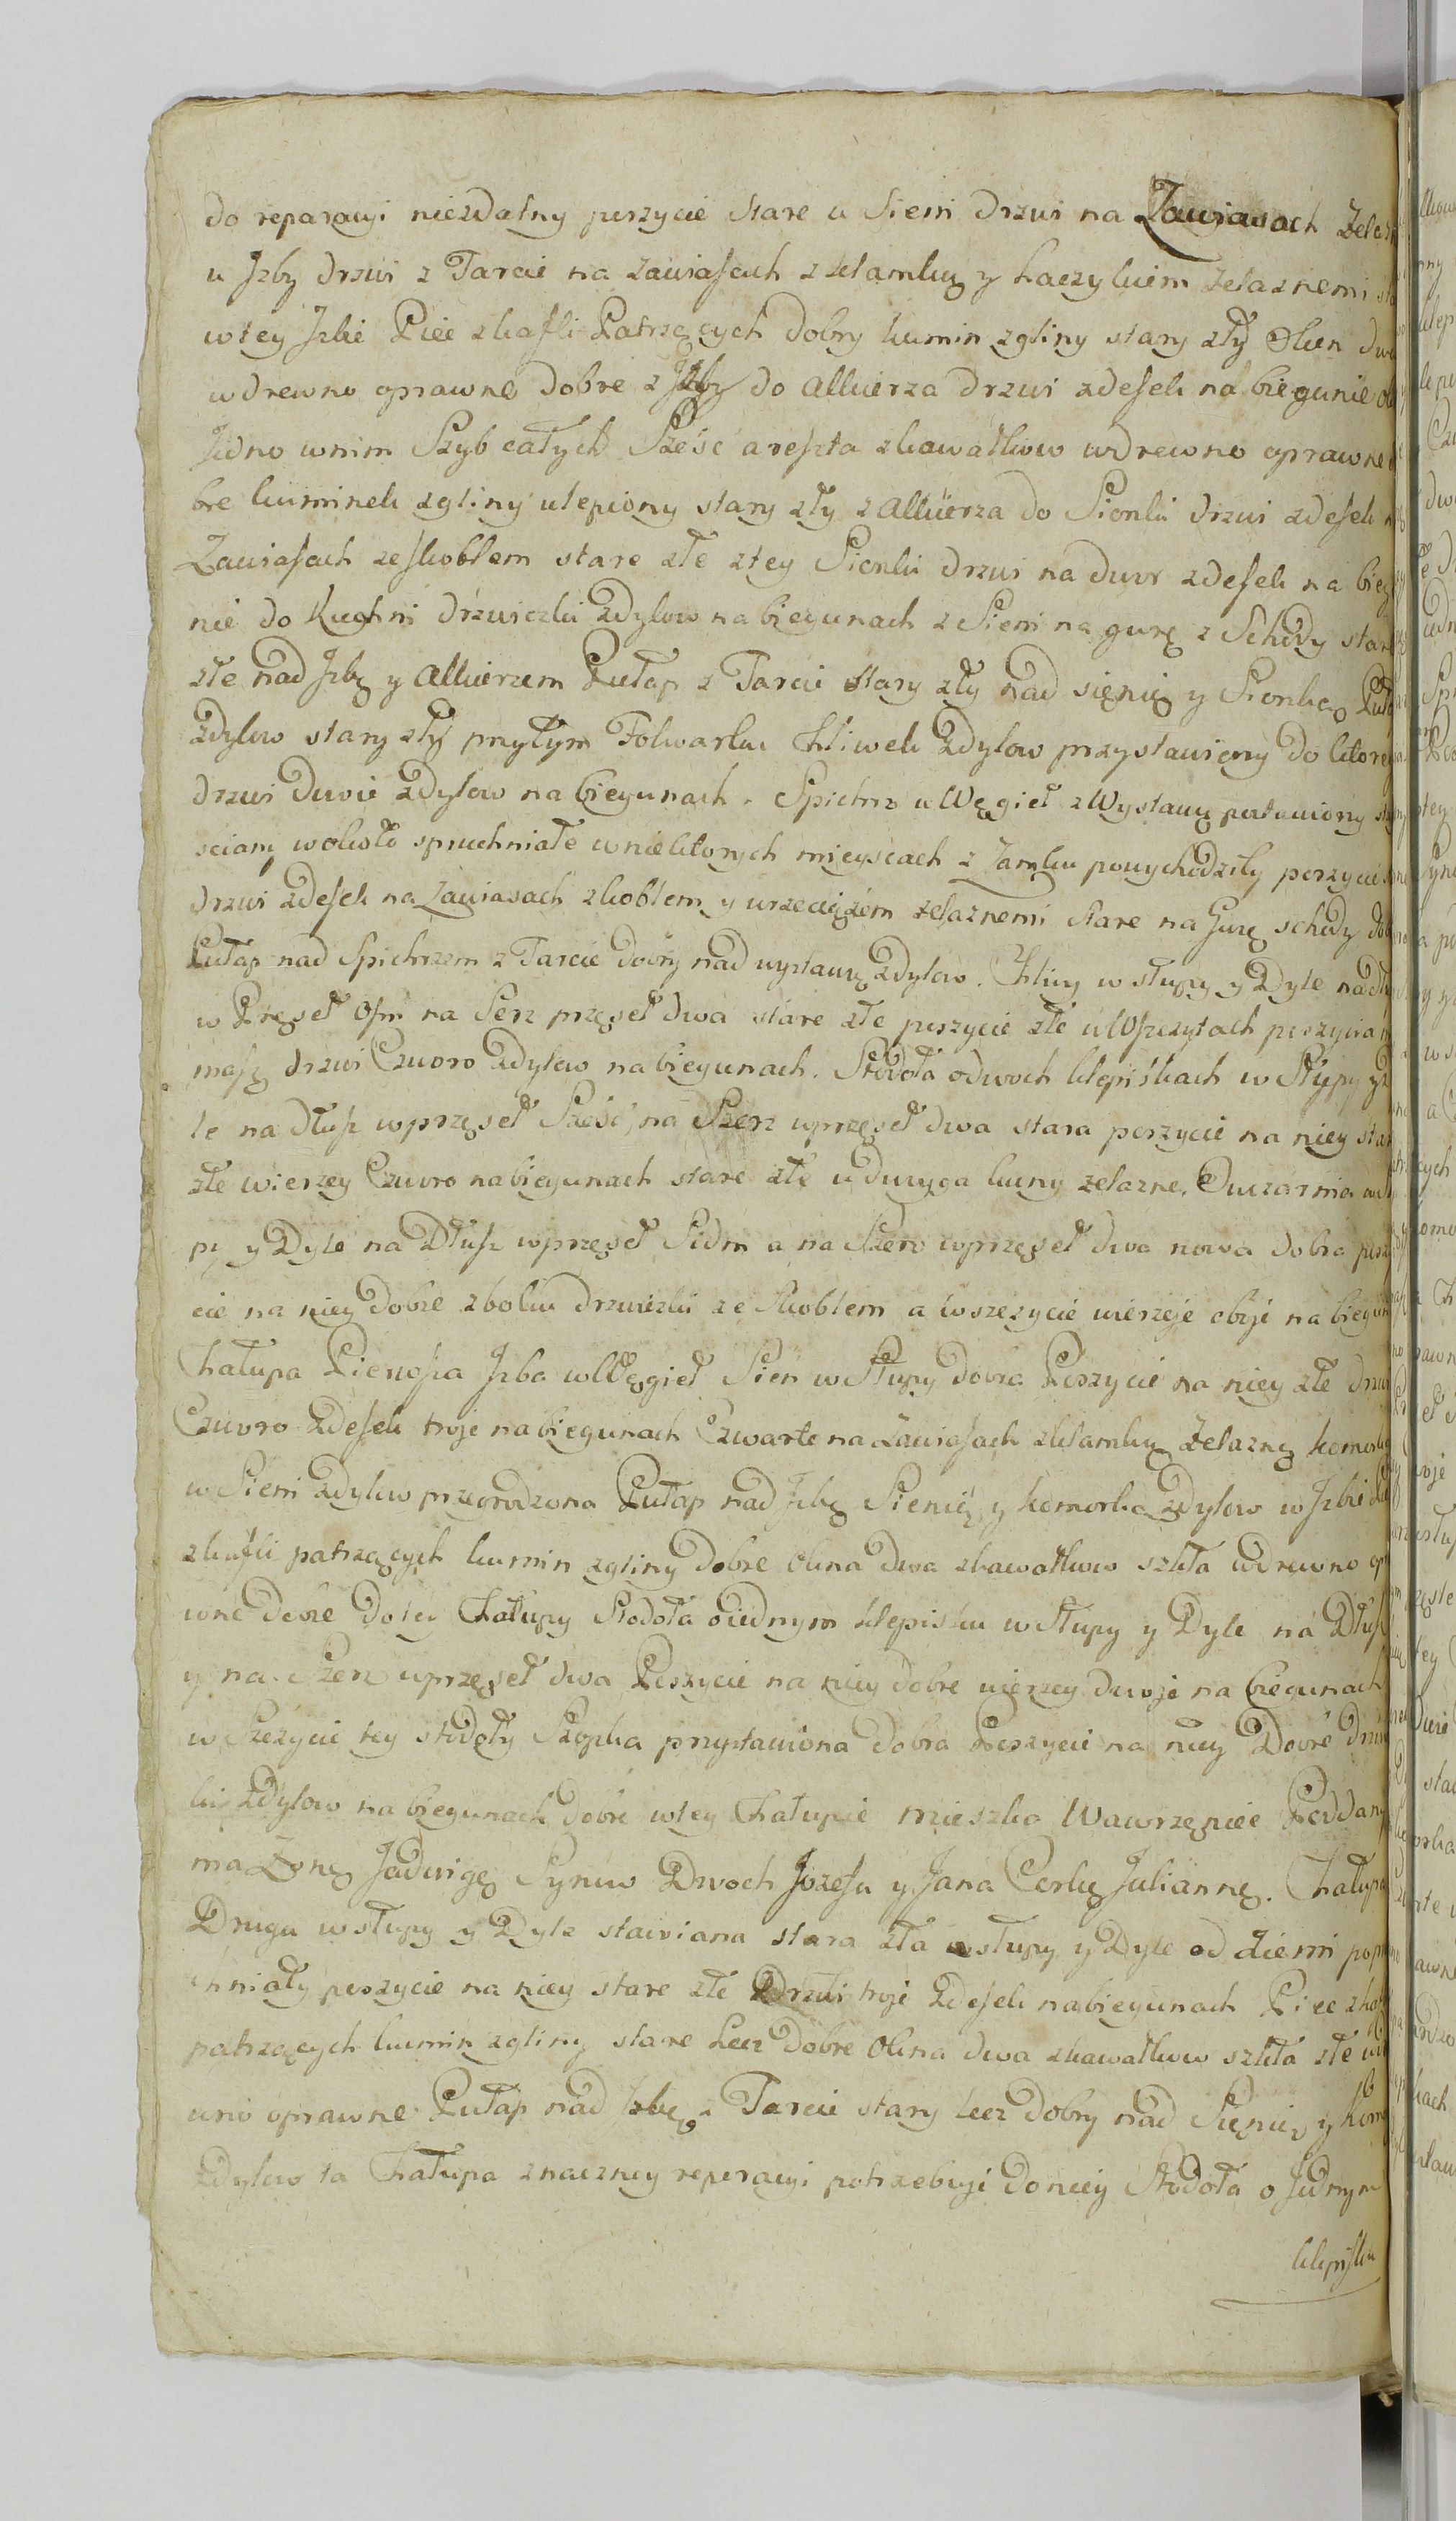 do reparacyi niezdatny poszycie stare u Sieni drzwi na Zawiasach
u Jzby drzwi z Tarcic na zawiasach z klamką y haczykiem żelaznemi
wtey Jzbie Piec zkafli Patrzących dobry kumin zgliny stary zły Okien
wdrewno oprawne dobre z Jzby do Alkierza drzwi zdesek na biegunie
Jedno wnim Szyb całych Sześć a reszta zkawałkow wdrewno oprawne
bre kuminek zgliny ulepiony stary zły z Alkierza do Sionki drzwi zdesek
Zawiasach ze skoblem stare złe ztey Sionki drzwi na dwor zdesek na
nie do Kuchni drzwiczki zdylow na biegunach z Sieni na gurę z Schody
złe nad Jzbą y Alkierzem Pułap z Tarcic stary zły nad sienią y Sionką
zdylow stary zły przytym Folwarku Chliwek zdylow przystawiony do
drzwi dwoie zdylow na biegunach. Spichrz w Węgieł z Wystawą postawiony
sciany wokoło spruchniałe wniektorych mieyscach z Zamku powychodziły
drzwi zdesek na Zawiasach zkoblem y wrzeciązem zelaznemi stare na Gurę schody
Pułap nad Spichrzem z Tarcic dobry nad wystawą zdylow. Chlivy w słupy y Dyle
w Przęseł Osm na Serz przęseł dwa stare złe poszycie złe w Wszczytach
maią drzwi Czworo zdylow na biegunach. Stodoła odwoch klepiskach w Słupy
le na dłusz wprzęseł Sześć, na Szerz wprzęseł dwa stara poszycie na niey
złe wierzey Czworo na biegunach stare złe u dwoyga kuny zelazne. Owczarnia
py y Dyle na Dłusz wprzęseł Sidm a na Szerz wprzęseł dwa nowa dobra
cie na niey dobre zboku drzwiczki ze Skoblem a wszczycie wierzeje oboje na
Chałupa Pierwsza Jzba w Węgieł Sien w Słupy dobra Poszycie na niey złe
Czworo zdesek troje na biegunach Czwarte na Zawiasach zklamką żelazną
w Sieni zdylow przegrodzona Pułap nad Jzbą Sienią y komorką zdylow w Jzbie
zkafli patrzących kumin zgliny dobre Okna dwa zkawałkow szkła wdrewno
wne dobre do tey Chałupy Stodoła oiednym klepisku w Słupy y Dyle na Dłusz
y na Szerz wprzęseł dwa Poszycie na niey dobre wierzey dwoje na biegunach
w Szczycie tey stodoły Szopka przystawiona dobra Poszycie na niey Dobre
ki zdylow na biegunach dobre wtey Chałupie mieszka Wawrzęniec
ma Zonę Jadwigę Synow Dwoch Jozefa y Jana Corkę Juliannę. Chałupa
Druga wsłupy y Dyle stawiana stara zła słupy y Dyle od Ziemi
chniały poszycie na niey stare złe Drzwi troje zdesek nabiegunach Piec
patrzących kumin zgliny stare lecz dobre Okna dwa zkawałkow szkła złe
wno oprawne Pułap nad Jzbą z Tarcic stary lecz dobry nad Sienią y
zdylow ta Chałupa znaczney reperacyi potrzebuji do niey Stodoła o Jednym
klepisku